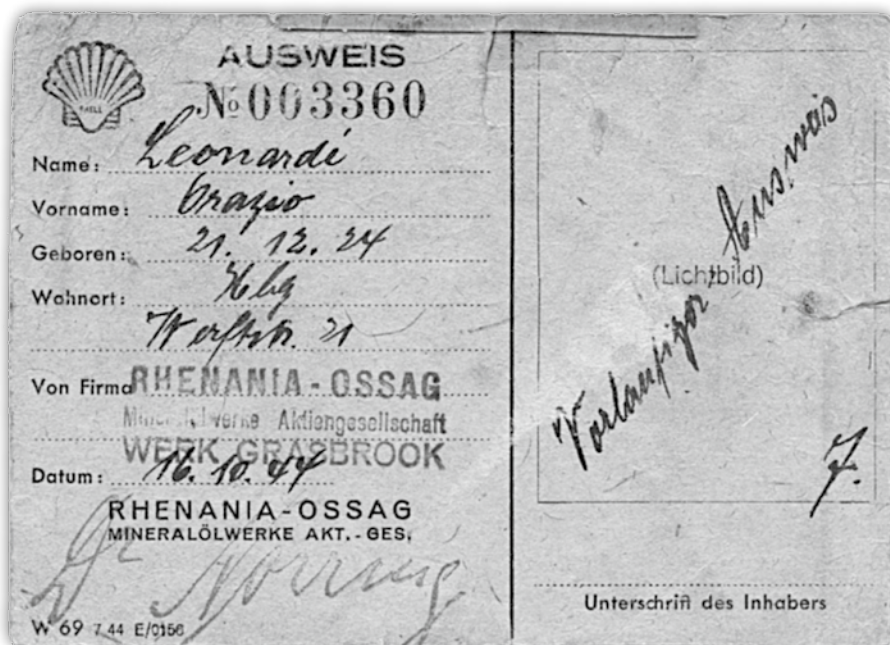 SHELL
AUSWEIS
No 003360
Name: Leonardi
Vorname: Orazio
Geboren: 21. 12. 24
Wohnort: Hbg
Werftstr. 21
Von Firma RHENANIA-OSSAG
Mineralölwerke Aktiengesellschaft
WERK GRASBROOK
Datum: 16. 10. 44
RHENANIA-OSSAG
MINERALÖLWERKE AKT.-GES.
Dr
W 69 7.44 E/0156
(Lichtbild)
Vorlaufiger Ausweis
J.
Unterschrift des Inhabers